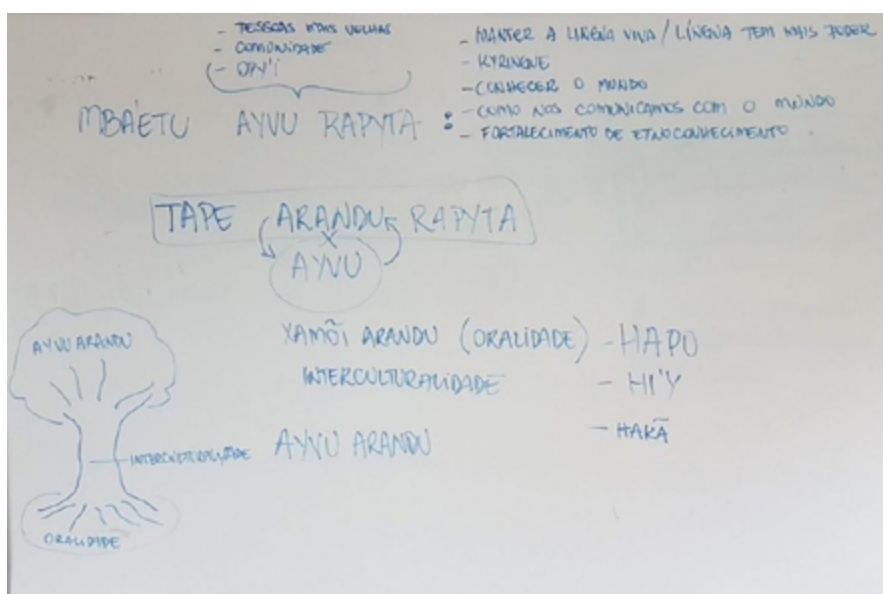 - PESSOAS MAIS VELHAS
- COMUNIDADE
- OPY'I
MBA'ETU AYVU RAPYTA :
- MANTER A LÍNGUA VIVA / LÍNGUA TEM MAIS PODER
- KYRINGUE
- CONHECER O MUNDO
- COMO NOS COMUNICAMOS COM O MUNDO
- FORTALECIMENTO DE ETNOCONHECIMENTO
TAPE ARANDU RAPYTA
X
AYVU
XAMÕI ARANDU (ORALIDADE) - HAPO
INTERCULTURALIDADE - HI'Y
AYVU ARANDU - HAKÃ
AYVU ARANDU
INTERCULTURALIDADE
ORALIDADE